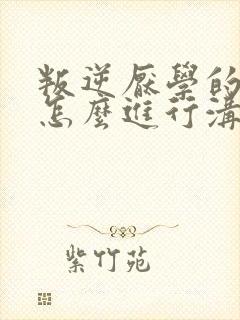 叛逆厭學的
怎麼進行溝
紫竹苑